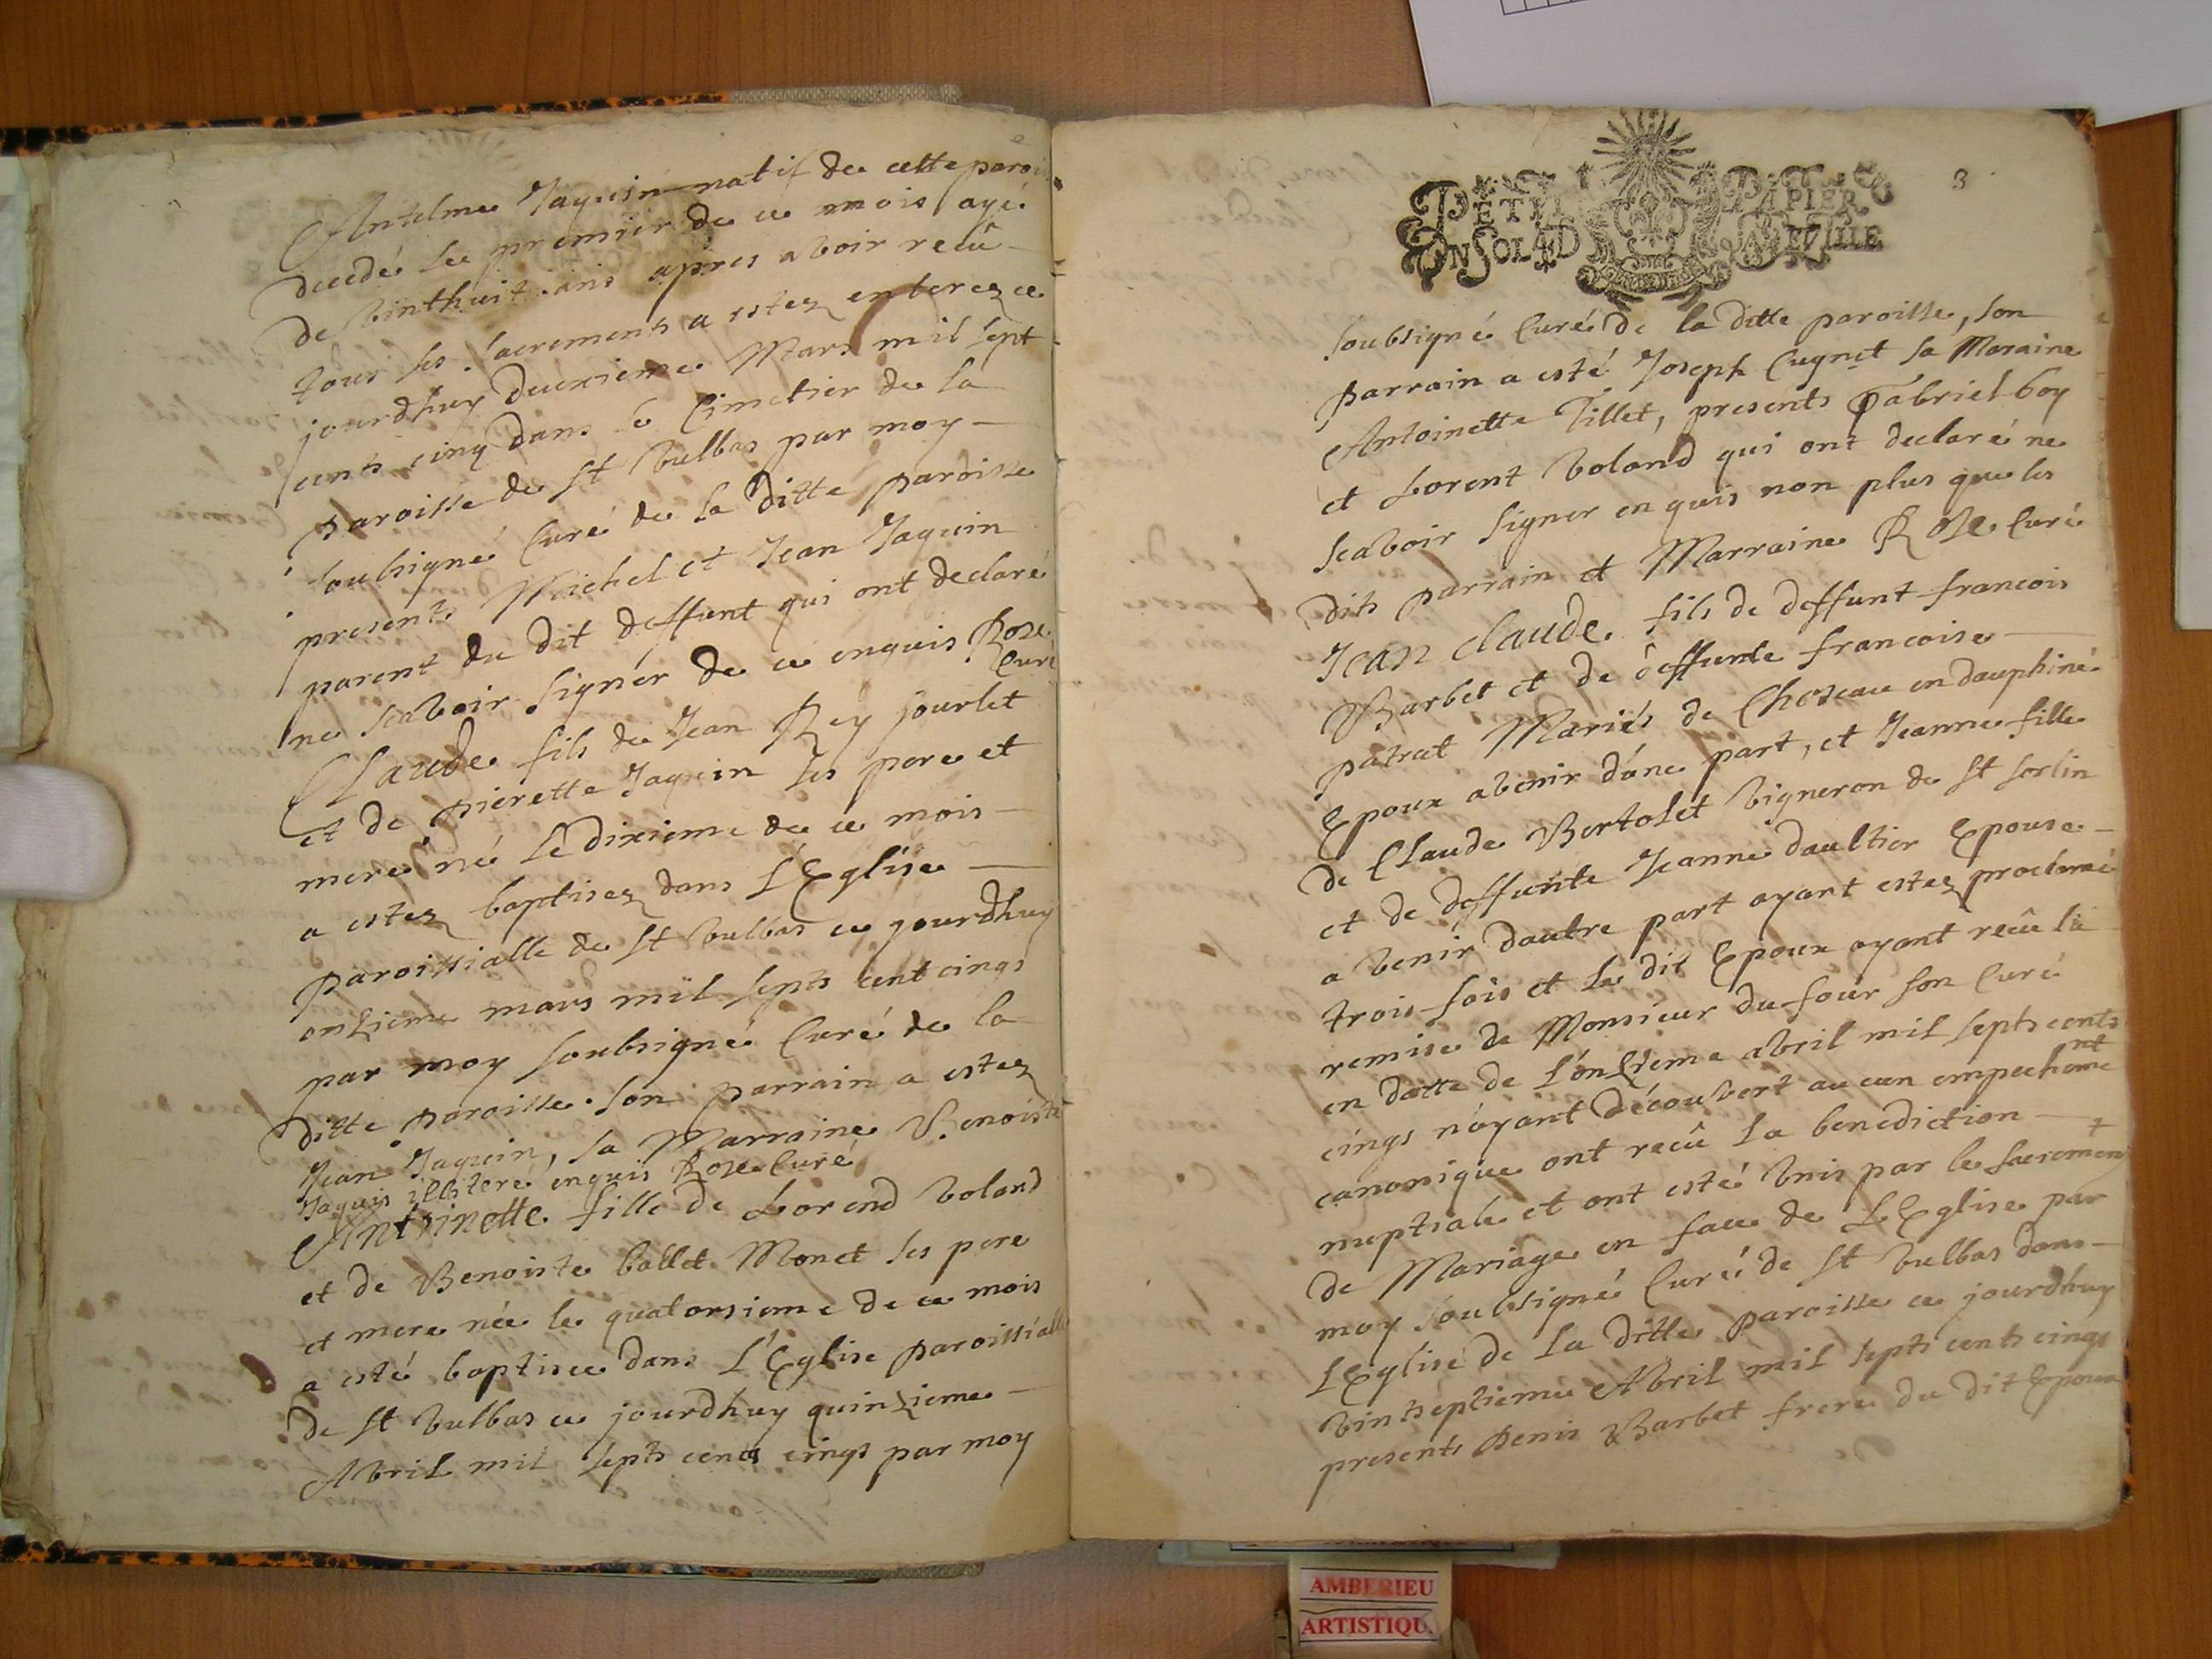 Antelme Jaquin natif de cette parois
decedé le premier de ce mois agé
de vinthuit ans apres avoir recû
tous ses sacrements a estez enterez ce
jourdhuy deuxieme Mars mil sept
cents cinq dans le Cimetier de la
paroisse de St Vulbas par moy
soubsigné Curé de la ditte paroisse
presents Michel et Jean Jaquin
parent du dit deffunt qui ont declaré
ne scavoir signér de ce enquis Roze
Curé
Claude fils de Jean Rey jourlet
et de pierette Jaquin ses pere et
mere né le dixieme de ce mois
a estez baptisez dans L'Eglise
paroissialle de St Vulbas ce jourdhuy
onzieme mars mil septs cent cings
par moy soubsigné Curé de la
ditte paroisse. son parrain a estez
Jean Jaquin, sa Marraine Benoiste
Jaquis illiteré enquis Roze Curé
Antoinette fille de Lorend Voland
et de Benoiste Ballet Monet ses pere
et mere née le quatorsieme de ce mois
a esté baptisee dans L'Eglise paroissialle
de St Vulbas ce jourdhuy quinzieme
Abril mil septs cents cings par moy
3
PETIT PAPIER
EN SOLS D
soubsigné Curé de la ditte paroisse, son
parrain a esté Joseph Cugnet sa Maraine
Antoinette Tillet, presents Gabriel boy
et Lorent Voland qui ont declaré ne
scavoir signer enquis non plus que les
dits parrain et Marraine Roze Curé
Jean Claude fils de deffunt francois
Barbet et de deffunte francoise
patrat Mariés de Chozeau en dauphiné
Epoux avenir d'une part, et Jeanne fille
de Claude Bertolet Vigneron de St sorlin
et de deffunte Jeanne daultier Epouse
a venir dautre part ayant estez proclamé
trois fois et le dit Epoux ayant recû la
remise de Monsieur du four son Curé
en datte de L'onzieme abril mil septs cents
cings n'ayant découvert aucun empecheme
nt
canonique ont recû la benediction
nuptiale et ont esté Unis par le sacremen
t
de Mariage en face de L'Eglise par
moy soubsigné Curé de St Vulbas dans
L'Eglise de la ditte paroisse ce jourdhuy
vintseptieme Abril mil septs cents cings
presents Denis Barbet frere du dit Epoux
AMBERIEU
ARTISTIQU